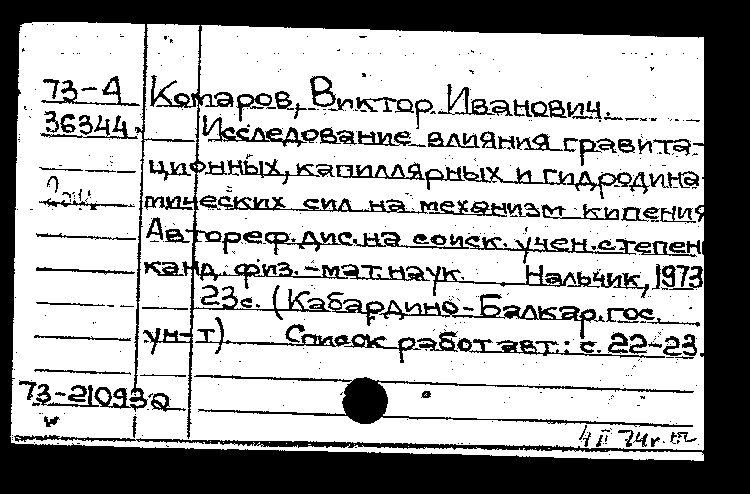 73-А
36344
Комаров, Виктор Иванович.
Исследование влияния гравита-
ционных, капиллярных и гидродина-
мических сил на механизм кипения
Автореф. дис. на соиск. учен. степени
канд. физ.-мат. наук. Нальчик, 1973
23с. (Кабардино-Балкар. гос.
ун-т). Список работ авт.: с. 22-23.
73-21093
4 II 74г.